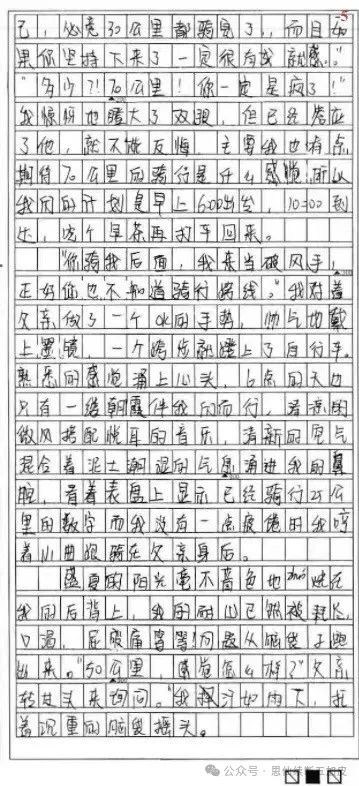 -5
己,必竟30公里都骑完了,而且如
果你坚持下来了一定很有成就感。"
"多少?!70公里!你一定是疯了!"
我惊讶地瞪大了双眼,但已经答应
了他,就不能反悔,主要我也有点
期待70公里的骑行是什么感觉!所以
我们的计划是早上6:00出发,10:00到
达,吃个早茶再打车回来。
"你骑我后面,我来当破风手,
正好你也不知道骑行路线。"我对着
父亲做了一个OK的手势,帅气地戴
上墨镜,一个跨步就蹬上了自行车。
熟悉的感觉涌上心头,6点的天边
只有一缕朝霞伴我们而行,清凉的
微风搭配悦耳的音乐,清新的空气
混合着泥土潮湿的气息涌进我的鼻
腔,看着表盘上显示已经骑行25公
里的数字而我没有一点疲倦的我哼
着小曲跟骑在父亲身后。
盛夏的阳光毫不吝啬地zhuó烧在
我的后背上,我的耐心已然被耗尽,
口渴,屁股痛等等问题从脑袋子跑
出来。"50公里,感觉怎么样?"父亲
转过头来询问。"我挥汗如雨下,托
着沉重的脑袋摇头。
公众号·思他续断五加皮